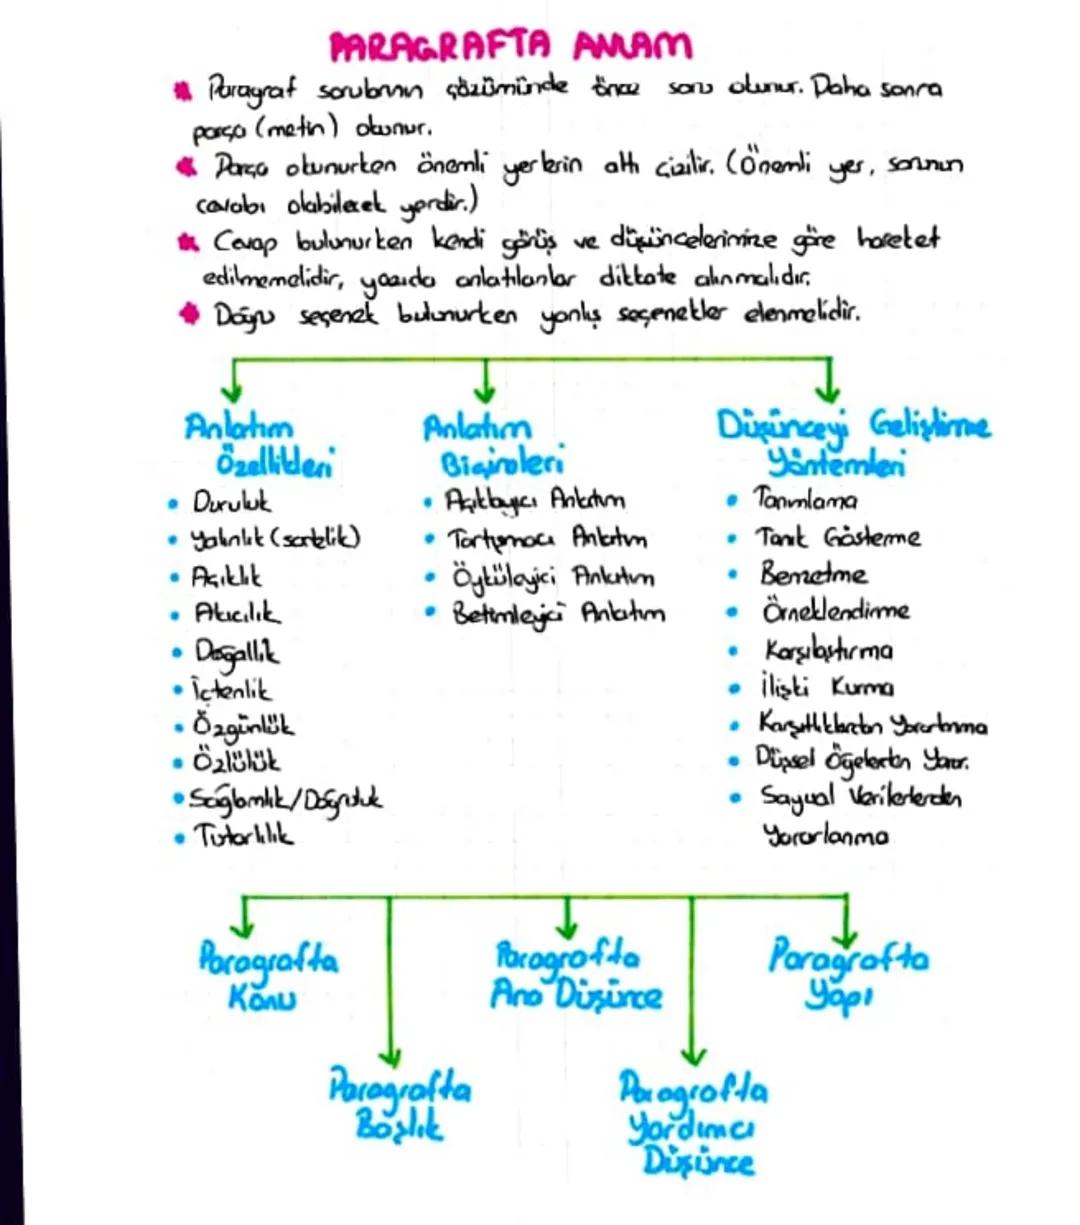 PARAGRAFTA ANLAM
Paragraf sorularının çözümünde önce soru okunur. Daha sonra
parça (metin) okunur.
Parça okunurken önemli yerlerin altı çizilir. (Önemli yer, sorunun
cevabı olabilecek yerdir.)
Cevap bulunurken kendi görüş ve düşüncelerimize göre hareket
edilmemelidir, yazıda anlatılanlar dikkate alınmalıdır.
Doğru seçenek bulunurken yanlış seçenekler elenmelidir.
Anlatım
Özellikleri
Duruluk
Yalınlık (sadelik)
Açıklık
Akıcılık
Doğallık
İçtenlik
Özgünlük
Özlülük
Sağlamlık/Doğruluk
Tutarlılık
Anlatım
Biçimleri
Açıklayıcı Anlatım
Tartışmacı Anlatım
Öyküleyici Anlatım
Betimleyici Anlatım
Düşünceyi Geliştirme
Yöntemleri
Tanımlama
Tanık Gösterme
Benzetme
Örneklendirme
Karşılaştırma
İlişki Kurma
Karşıtlıklardan Yararlanma
Düşsel Öğelerden Yarar.
Sayısal Verilerlerden
Yararlanma
Paragrafta
Konu
Paragrafta
Ana Düşünce
Paragrafta
Yapı
Paragrafta
Başlık
Paragrafta
Yardımcı
Düşünce